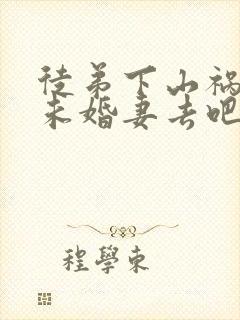 徒弟下山祸
未婚妻去吧
程學東